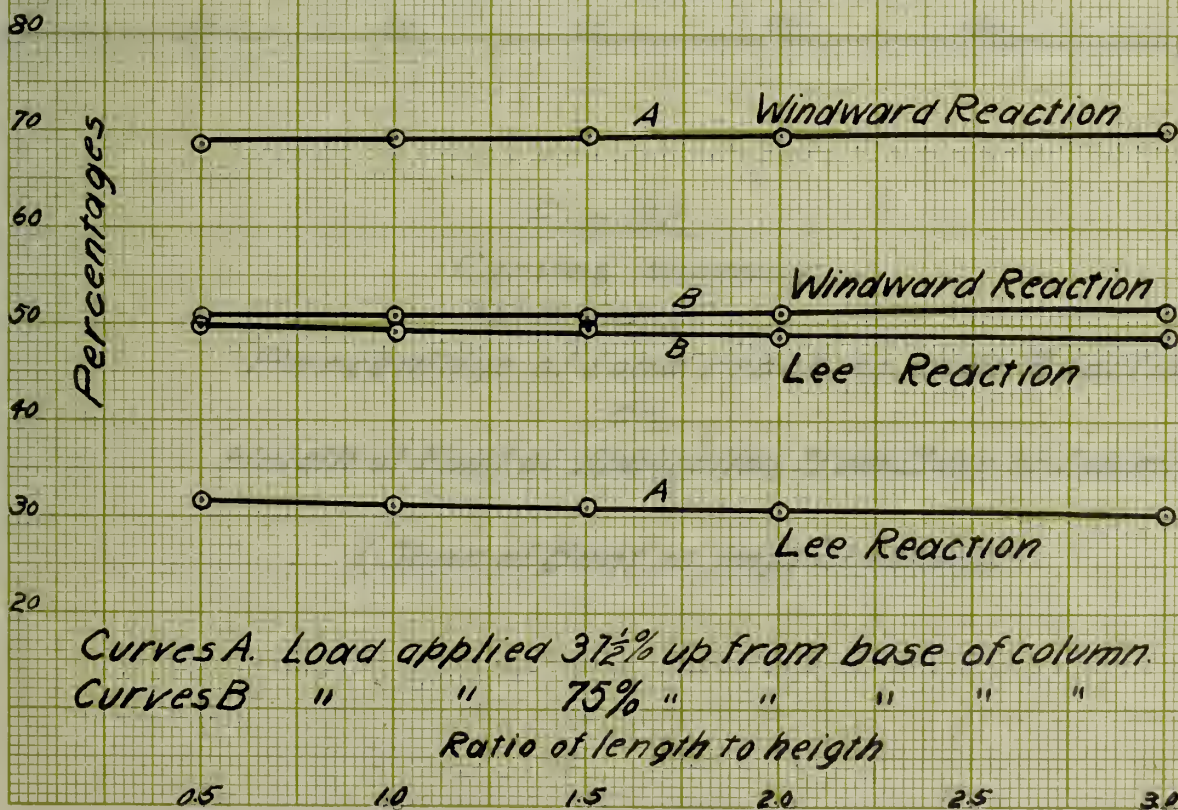 80
70
60
50
40
30
20
Percentages
A Windward Reaction
B Windward Reaction
B
Lee Reaction
A
Lee Reaction
Curves A. Load applied 37½% up from base of column.
Curves B " " 75% " " " " "
Ratio of length to heigth
0.5 1.0 1.5 2.0 2.5 3.0